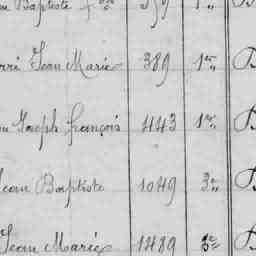 Baptiste
Jean Marie 389 1re B
Joseph françois 443 1re B
Jean Baptiste 1049 3e B
Jean Marie 1489 B